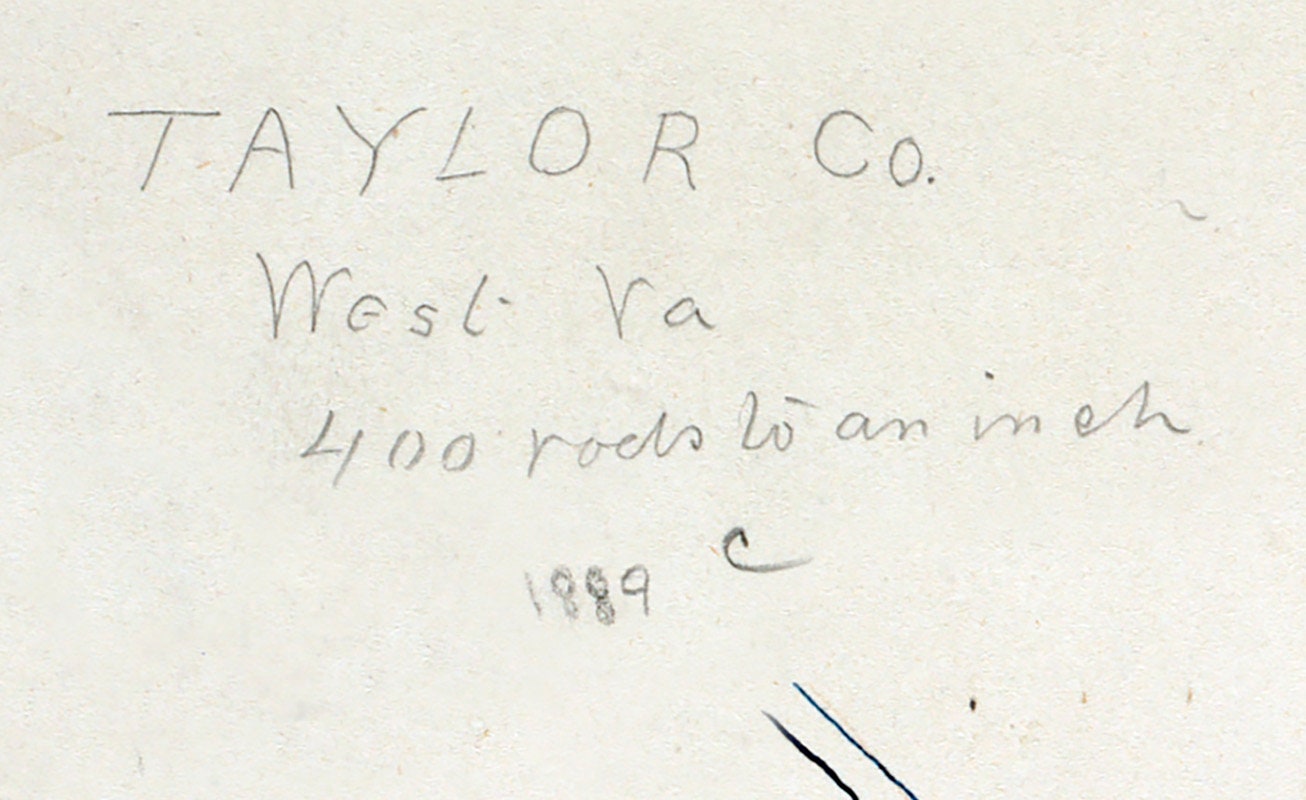 TAYLOR Co.
West Va
400 rods to an inch
C
1889